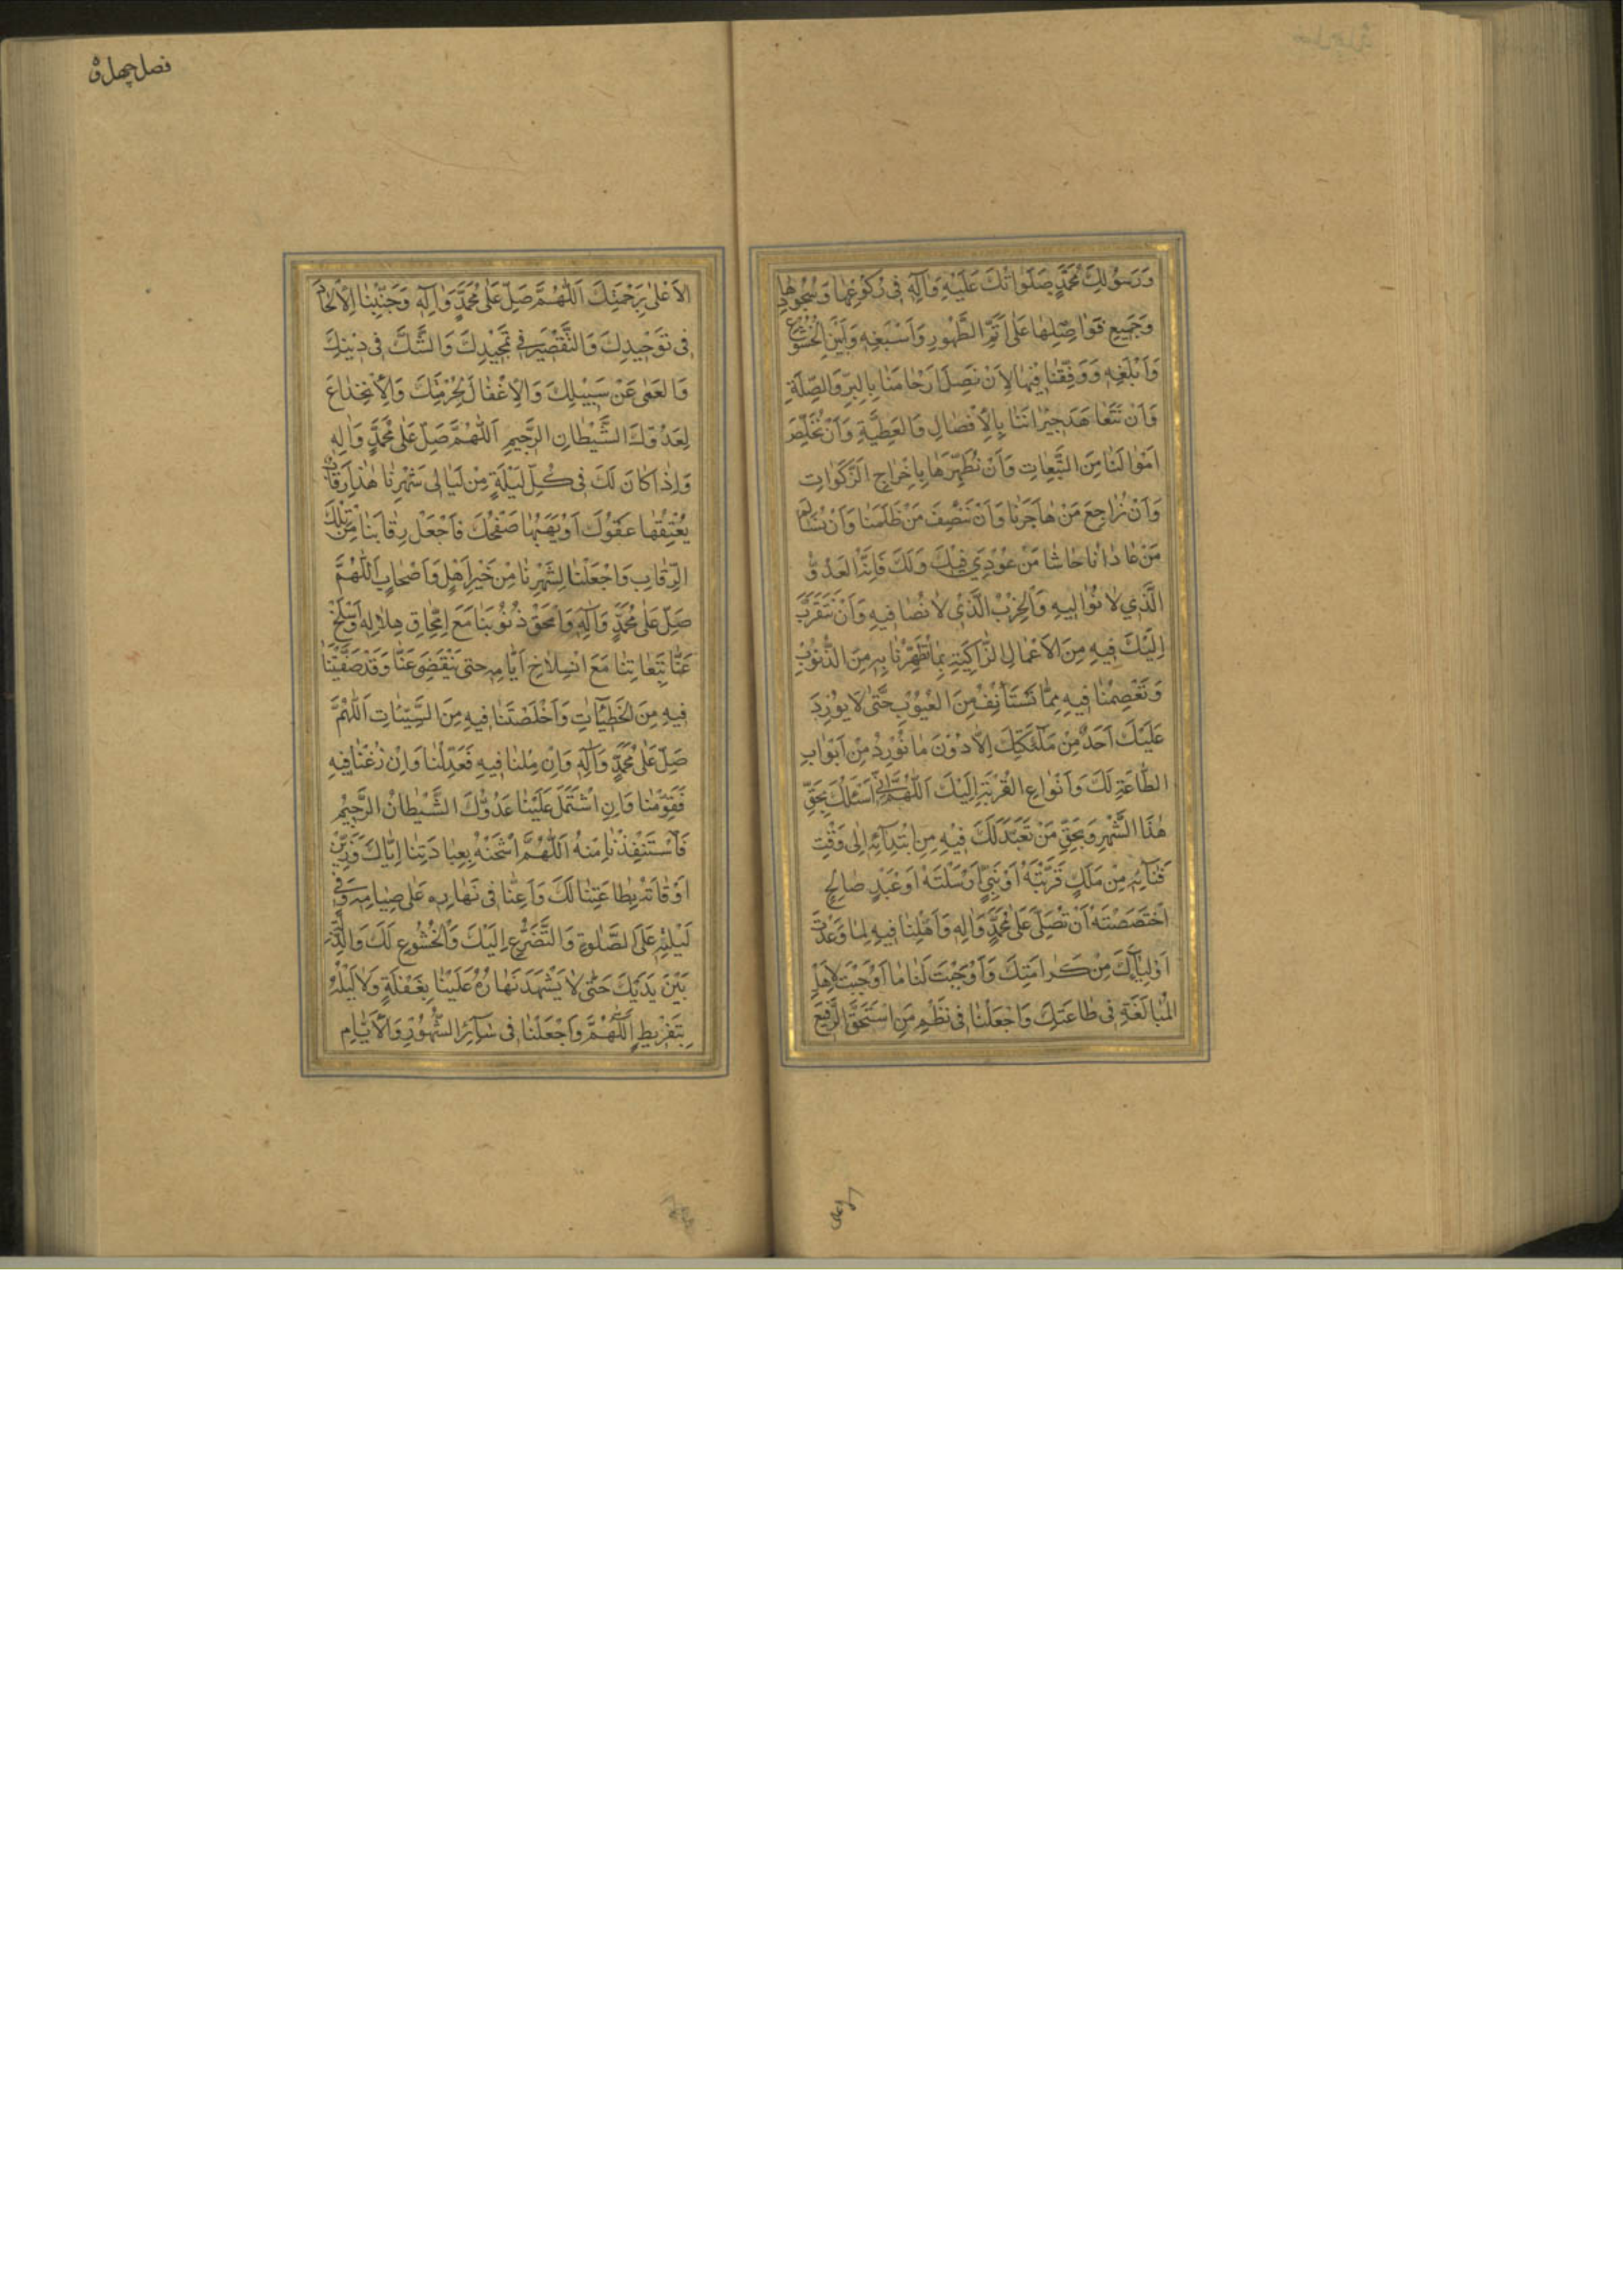 وَرَسُولِكَ مُحَمَّدٍ صَلَوَاتُكَ عَلَيْهِ وَآلِهِ فِي رُكُوعِهَا وَسُجُودِهَا
وَجَمِيعِ فَوَاضِلِهَا عَلَى أَتَمِّ الطَّهُورِ وَأَسْبَغِهِ وَأَبْيَنِ الْخُشُوعِ
وَأَبْلَغِهِ وَوَفِّقْنَا فِيهَا لِأَنْ نَصِلَ أَرْحَامَنَا بِالْبِرِّ وَالصِّلَةِ
وَأَنْ نَتَعَاهَدَ جِيرَانَنَا بِالْإِفْضَالِ وَالْعَطِيَّةِ وَأَنْ نُخَلِّصَ
أَمْوَالَنَا مِنَ التَّبِعَاتِ وَأَنْ نُطَهِّرَهَا بِإِخْرَاجِ الزَّكَوَاتِ
وَأَنْ نُرَاجِعَ مَنْ هَاجَرَنَا وَأَنْ نُنْصِفَ مَنْ ظَلَمَنَا وَأَنْ نُسَالِمَ
مَنْ عَادَانَا حَاشَا مَنْ عُودِيَ فِيكَ وَلَكَ فَإِنَّهُ الْعَدُوُّ
الَّذِي لَا نُوَالِيهِ وَالْحِزْبُ الَّذِي لَا نُصَافِيهِ وَأَنْ نَتَقَرَّبَ
إِلَيْكَ فِيهِ مِنَ الْأَعْمَالِ الزَّاكِيَةِ بِمَا تُطَهِّرُنَا بِهِ مِنَ الذُّنُوبِ
وَتَعْصِمُنَا فِيهِ مِمَّا نَسْتَأْنِفُ مِنَ الْعُيُوبِ حَتَّى لَا يُورِدَ
عَلَيْكَ أَحَدٌ مِنْ مَلَئِكَتِكَ إِلَّا دُونَ مَا نُورِدُ مِنْ أَبْوَابِ
الطَّاعَةِ لَكَ وَأَنْوَاعِ الْقُرْبَةِ إِلَيْكَ اَللَّهُمَّ إِنِّي أَسْئَلُكَ بِحَقِّ
هَذَا الشَّهْرِ وَبِحَقِّ مَنْ تَعَبَّدَ لَكَ فِيهِ مِنِ ابْتِدَآئِهِ إِلَى وَقْتِ
فَنَآئِهِ مِنْ مَلَكٍ قَرَّبْتَهُ أَوْ نَبِيٍّ أَرْسَلْتَهُ أَوْ عَبْدٍ صَالِحٍ
اخْتَصَصْتَهُ أَنْ تُصَلِّيَ عَلَى مُحَمَّدٍ وَآلِهِ وَأَهِّلْنَا فِيهِ لِمَا وَعَدْتَ
أَوْلِيَآءَكَ مِنْ كَرَامَتِكَ وَأَوْجِبْ لَنَا مَا أَوْجَبْتَ لِأَهْلِ
الْمُبَالَغَةِ فِي طَاعَتِكَ وَاجْعَلْنَا فِي نَظْمِ مَنِ اسْتَحَقَّ الرَّفِيعَ
الأعلى
فصل چهل و
الْأَعْلَى بِرَحْمَتِكَ اَللَّهُمَّ صَلِّ عَلَى مُحَمَّدٍ وَآلِهِ وَجَنِّبْنَا الْإِلْحَادَ
فِي تَوْحِيدِكَ وَالتَّقْصِيرَ فِي تَمْجِيدِكَ وَالشَّكَّ فِي دِينِكَ
وَالْعَمَى عَنْ سَبِيلِكَ وَالْإِغْفَالَ لِحُرْمَتِكَ وَالْاِنْخِدَاعَ
لِعَدُوِّكَ الشَّيْطَانِ الرَّجِيمِ اَللَّهُمَّ صَلِّ عَلَى مُحَمَّدٍ وَآلِهِ
وَإِذَا كَانَ لَكَ فِي كُلِّ لَيْلَةٍ مِنْ لَيَالِي شَهْرِنَا هَذَا رِقَابٌ
يُعْتِقُهَا عَفْوُكَ أَوْ يَهَبُهَا صَفْحُكَ فَاجْعَلْ رِقَابَنَا مِنْ تِلْكَ
الرِّقَابِ وَاجْعَلْنَا لِشَهْرِنَا مِنْ خَيْرِ أَهْلٍ وَأَصْحَابٍ اَللَّهُمَّ
صَلِّ عَلَى مُحَمَّدٍ وَآلِهِ وَامْحَقْ ذُنُوبَنَا مَعَ امِّحَاقِ هِلَالِهِ وَاسْلَخْ
عَنَّا تَبِعَاتِنَا مَعَ انْسِلَاخِ أَيَّامِهِ حَتَّى يَنْقَضِيَ عَنَّا وَقَدْ صَفَّيْتَنَا
فِيهِ مِنَ الْخَطِيئَاتِ وَأَخْلَصْتَنَا فِيهِ مِنَ السَّيِّئَاتِ اَللَّهُمَّ
صَلِّ عَلَى مُحَمَّدٍ وَآلِهِ وَإِنْ مِلْنَا فِيهِ فَعَدِّلْنَا وَإِنْ زُغْنَا فِيهِ
فَقَوِّمْنَا وَإِنِ اشْتَمَلَ عَلَيْنَا عَدُوُّكَ الشَّيْطَانُ الرَّجِيمُ
فَاسْتَنْقِذْنَا مِنْهُ اَللَّهُمَّ اشْحَنْهُ بِعِبَادَتِنَا إِيَّاكَ وَزَيِّنْ
أَوْقَاتَهُ بِطَاعَتِنَا لَكَ وَأَعِنَّا فِي نَهَارِهِ عَلَى صِيَامِهِ وَفِي
لَيْلِهِ عَلَى الصَّلَوةِ وَالتَّضَرُّعِ إِلَيْكَ وَالْخُشُوعِ لَكَ وَالذِّلَّةِ
بَيْنَ يَدَيْكَ حَتَّى لَا يَشْهَدَ نَهَارُهُ عَلَيْنَا بِغَفْلَةٍ وَلَا لَيْلُهُ
بِتَفْرِيطٍ اَللَّهُمَّ وَاجْعَلْنَا فِي سَآئِرِ الشُّهُورِ وَالْأَيَّامِ